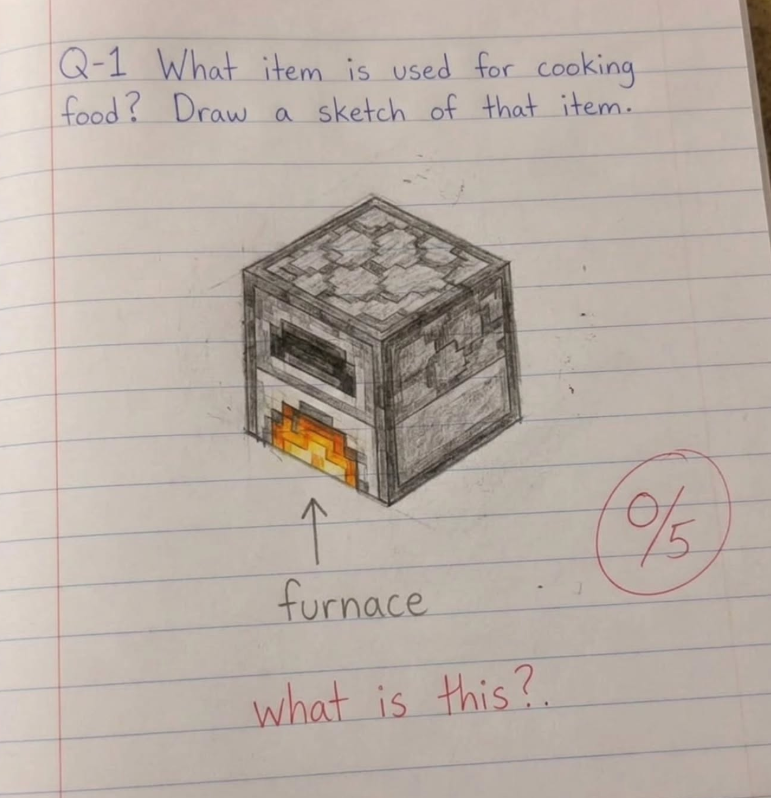 Q-1 What item is used for cooking
food? Draw a sketch of that item.
0/5
furnace
what is this?.